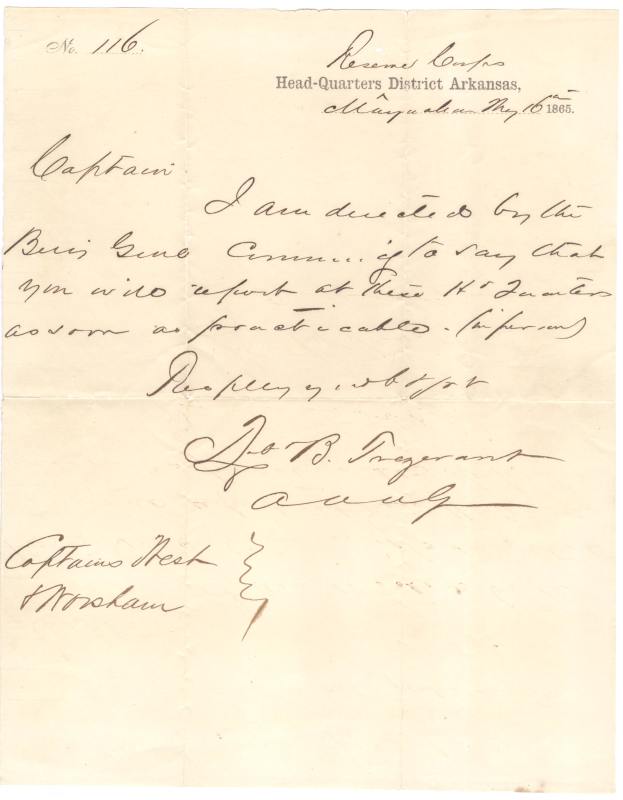 No. 116.
Reserve Corps
Head-Quarters District Arkansas,
May 16th 1865.
Captain
I am directed by the
Brig Genl Comm...ig to say that
you will report at these Hd Quarters
as soon as practicable. (in person)
Resplly yr obt svt
B. Trezevant
AAAG
Captains West
& Worsham